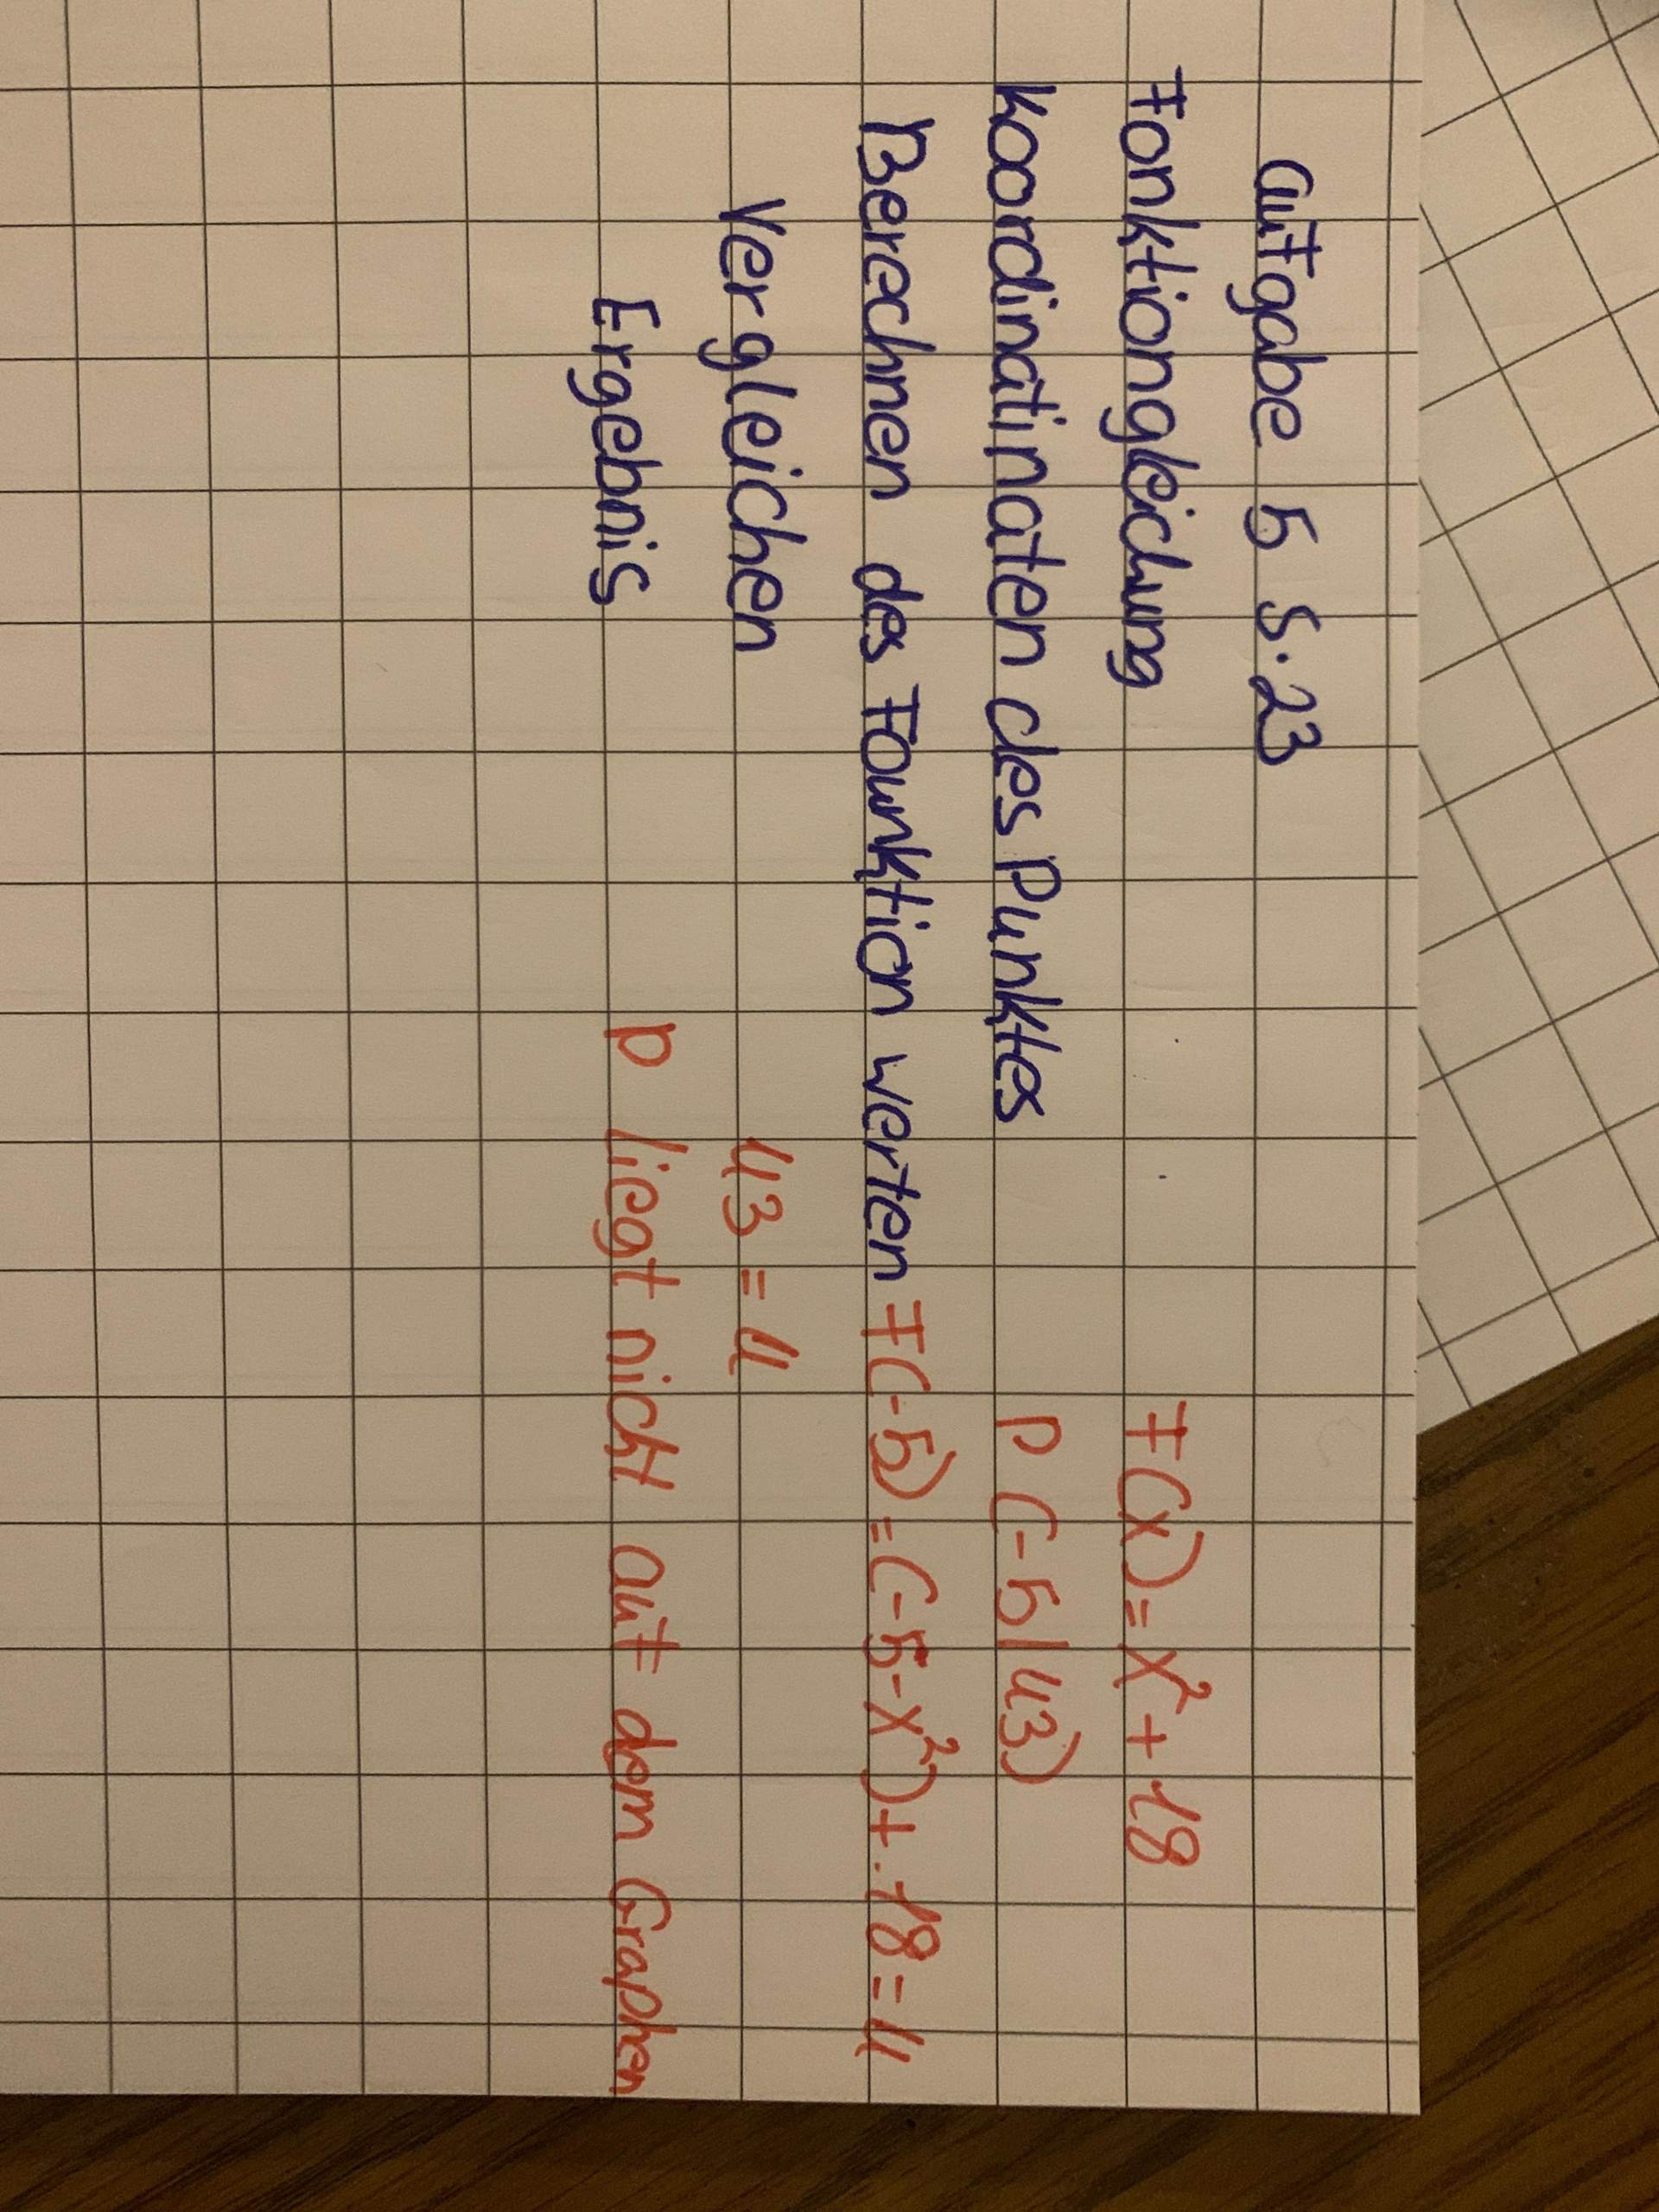 Aufgabe 5 S. 23
Fonktiongleichung F(x) = x² + 18
Koordinatinaten des Punktes P (-5|43)
Berechnen des Founktion werten F(-5) = (-5-x²) + 18 = 4
Vergleichen 43 = 4
Ergebnis P liegt nicht auf dem Graphen